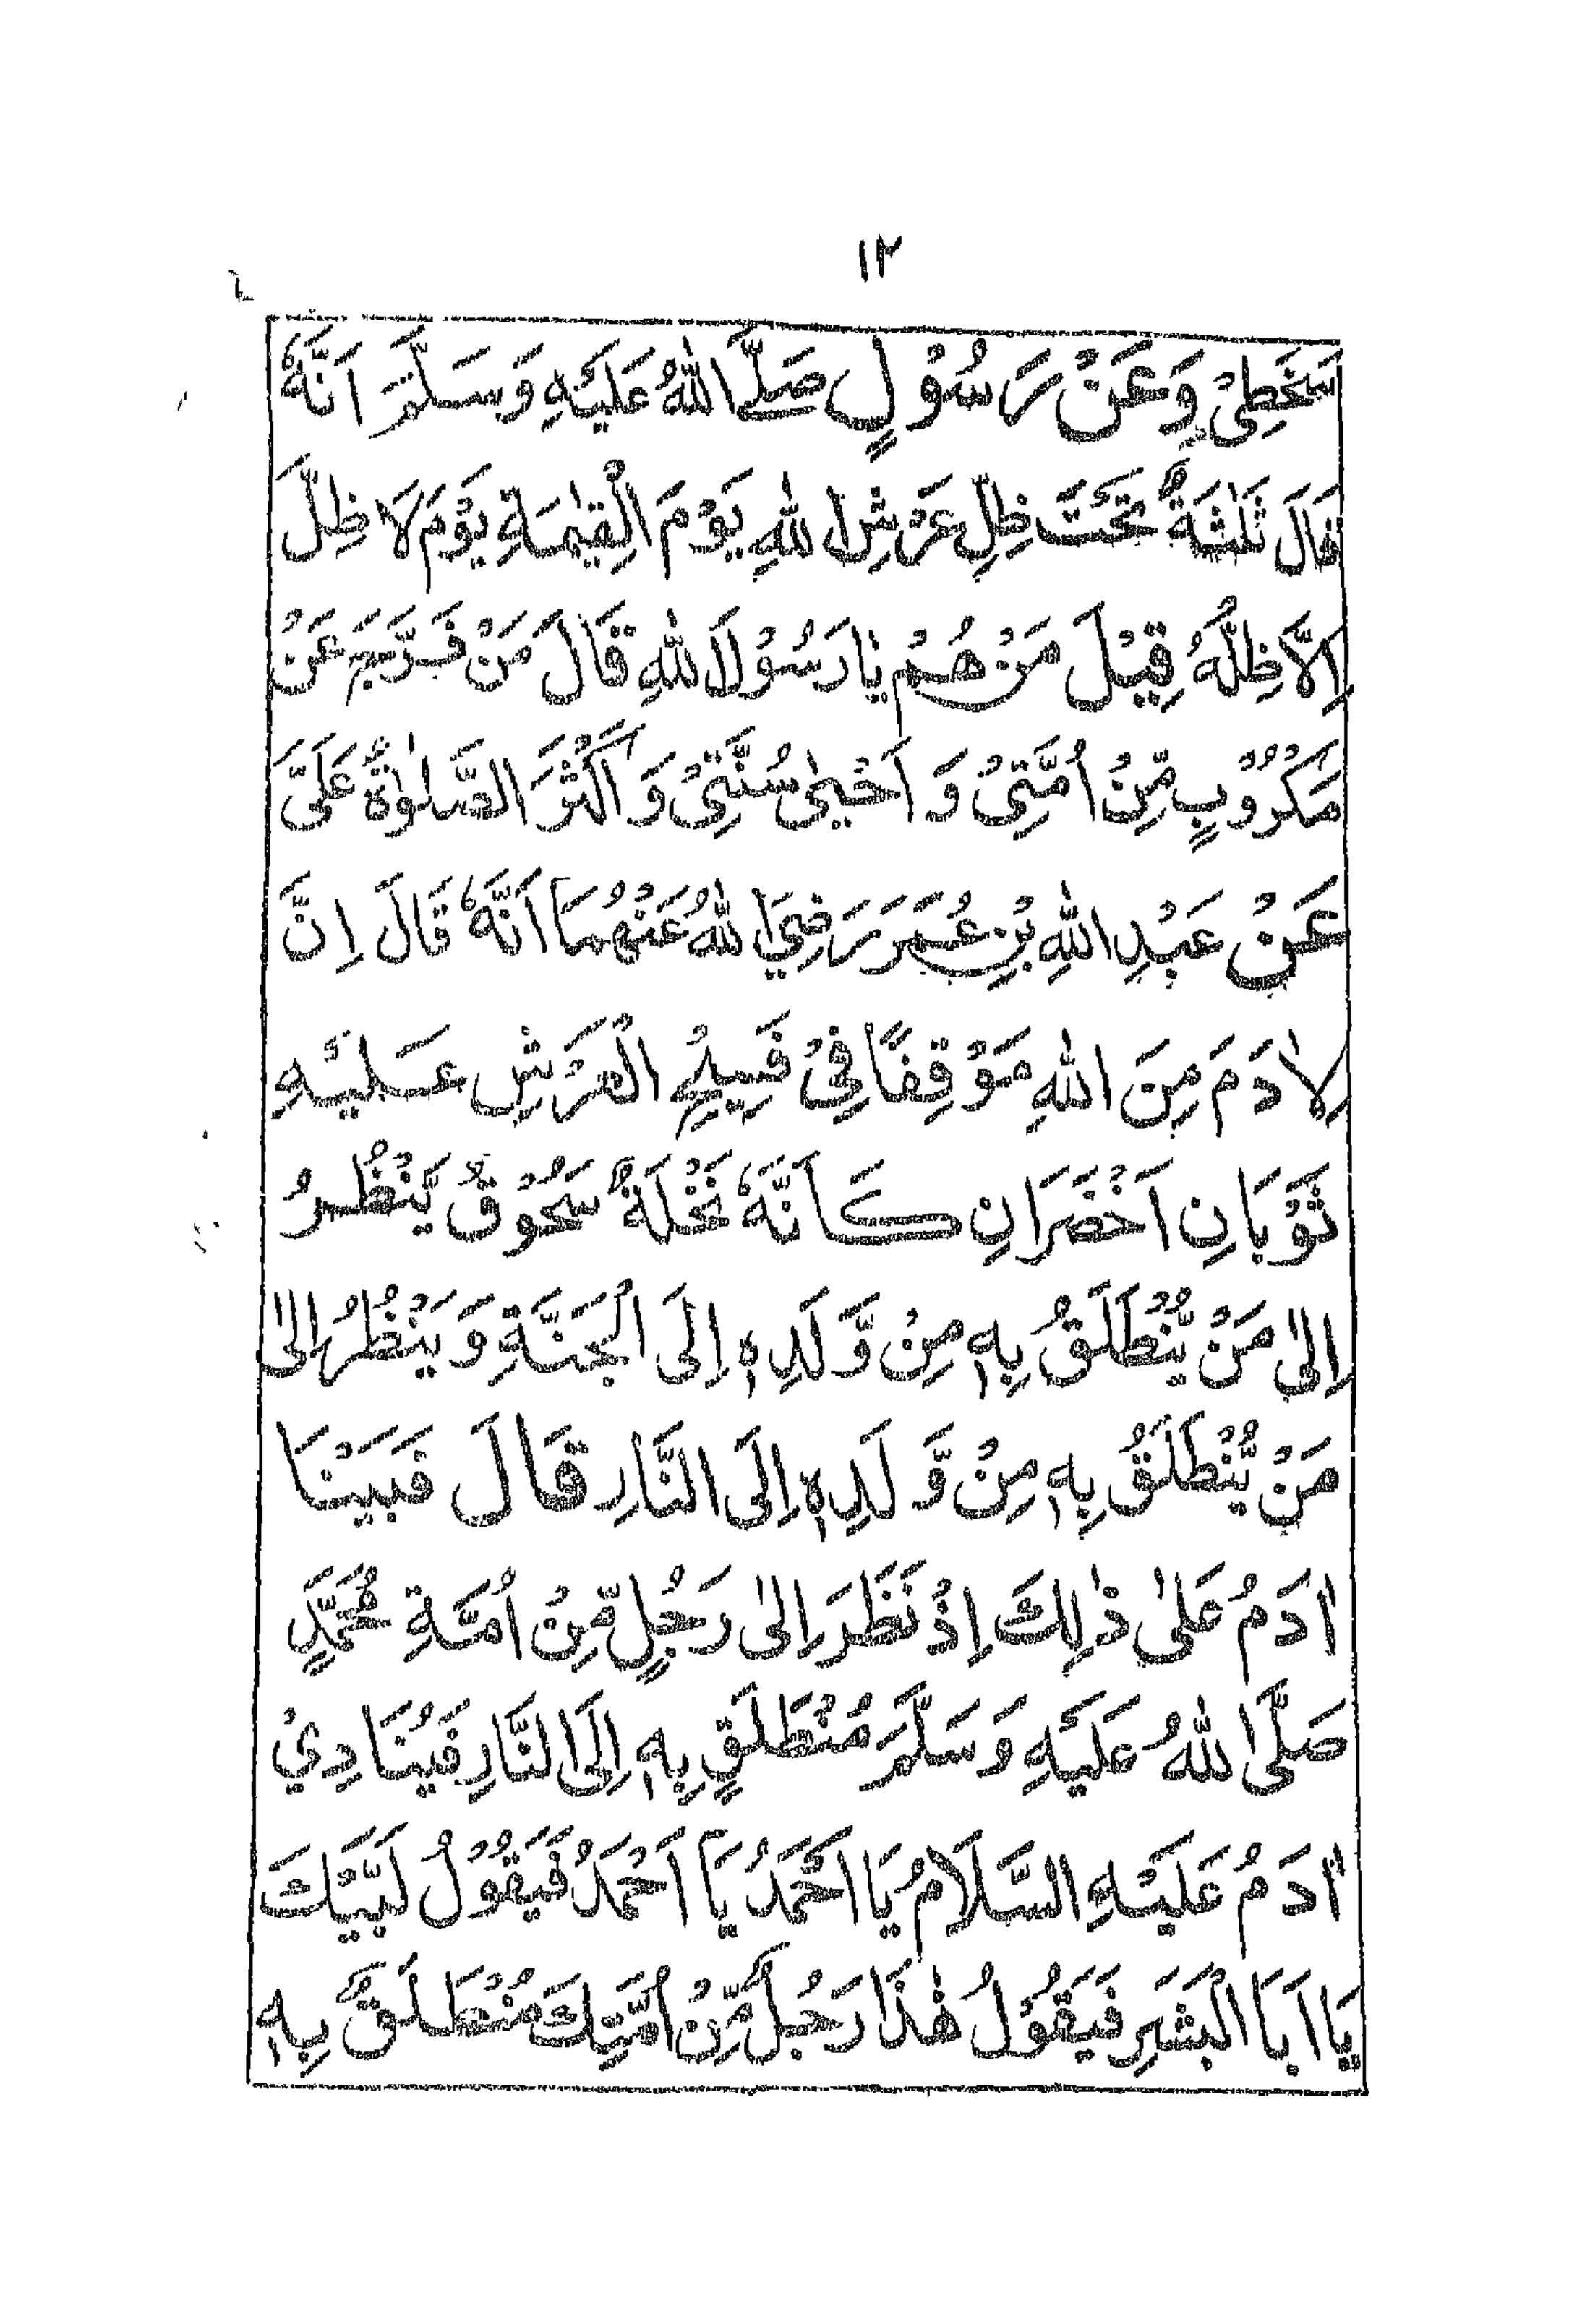 ١٢
سَخَطِيْ وَعَنْ رَسُوْلٍ صَلَّے اللّٰهُ عَلَيْهِ وَسَلَّمَ اَنَّهٗ
قَالَ ثَلٰثَةٌ تَحْتَ ظِلِّ عَرْشِ اللّٰهِ يَوْمَ الْقِيٰمَةِ يَوْمَ لَا ظِلَّ
اِلَّا ظِلُّهُ قِيْلَ مَنْ هُمْ يَا رَسُوْلَ اللّٰهِ قَالَ مَنْ فَرَّجَ عَنْ
مَكْرُوْبٍ مِّنْ اُمَّتِيْ وَ اَحْيٰى سُنَّتِيْ وَ اَكْثَرَ الصَّلٰوةَ عَلَيَّ
عَنْ عَبْدِ اللّٰهِ بْنِ عُمَرَ رَضِيَ اللّٰهُ عَنْهُمَا اَنَّهٗ قَالَ اِنَّ
لِاٰدَمَ مِنَ اللّٰهِ مَوْقِفًا فِيْ فَسِيْحِ الْعَرْشِ عَلَيْهِ
ثَوْبَانِ اَخْضَرَانِ كَاَنَّهٗ نَخْلَةٌ سَحُوْقٌ يَّنْظُرُ
اِلٰى مَنْ يُّنْطَلَقُ بِهٖ مِنْ وَّلَدِهٖ اِلَى الْجَنَّةِ وَ يَنْظُرُ اِلٰى
مَنْ يُّنْطَلَقُ بِهٖ مِنْ وَّلَدِهٖ اِلَى النَّارِ قَالَ فَبَيْنَا
اٰدَمُ عَلٰى ذٰلِكَ اِذْ نَظَرَ اِلٰى رَجُلٍ مِّنْ اُمَّةِ مُحَمَّدٍ
صَلَّى اللّٰهُ عَلَيْهِ وَسَلَّمَ مُنْطَلَقٍ بِهٖ اِلَى النَّارِ فَيُنَادِيْ
اٰدَمُ عَلَيْهِ السَّلَامُ يَا اَحْمَدُ يَآ اَحْمَدُ فَيَقُوْلُ لَبَّيْكَ
يَا اَبَا الْبَشَرِ فَيَقُوْلُ هٰذَا رَجُلٌ مِّنْ اُمَّتِكَ مُنْطَلَقٌ بِهٖ